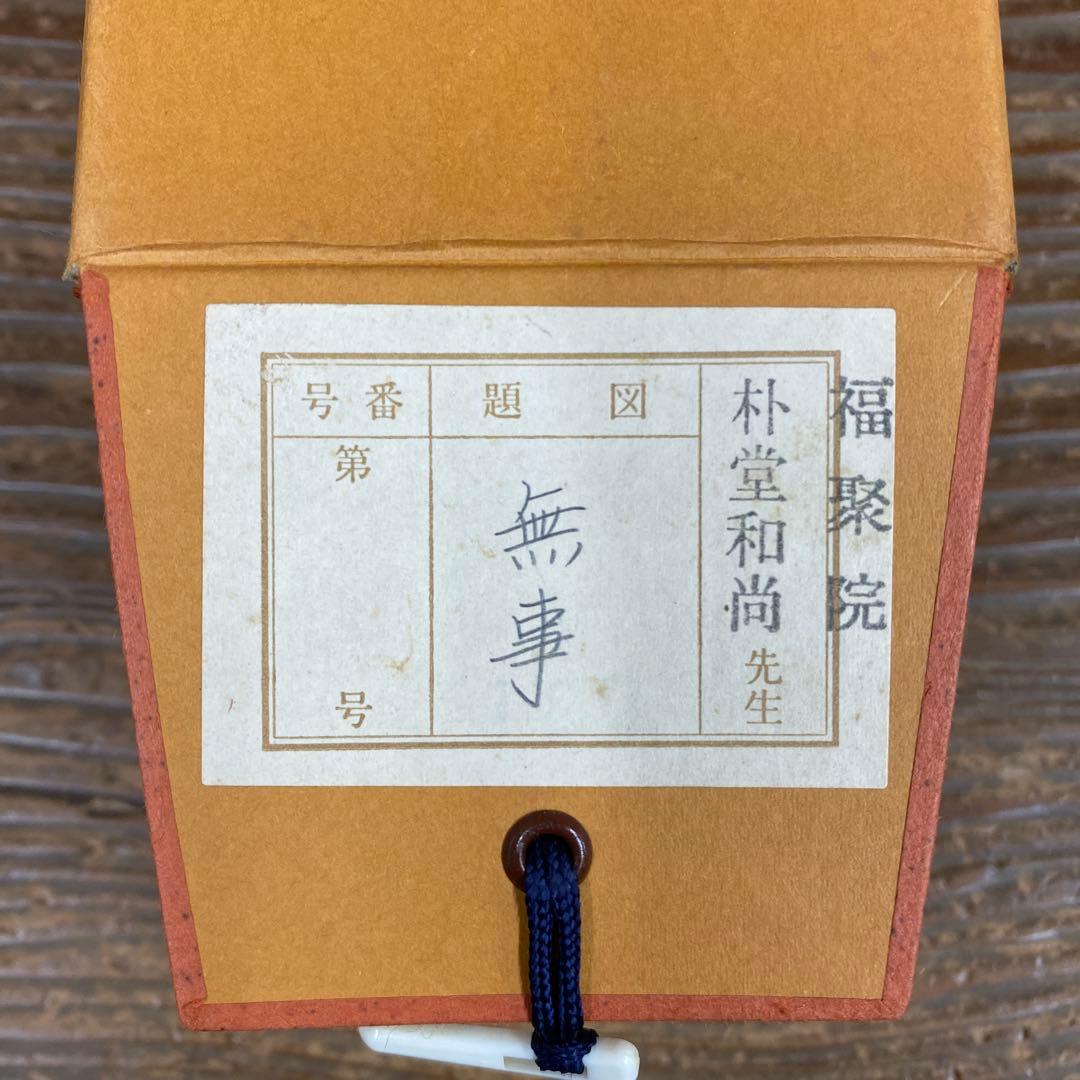 福聚院
朴堂和尚先生
図題
無事
番号
第
号